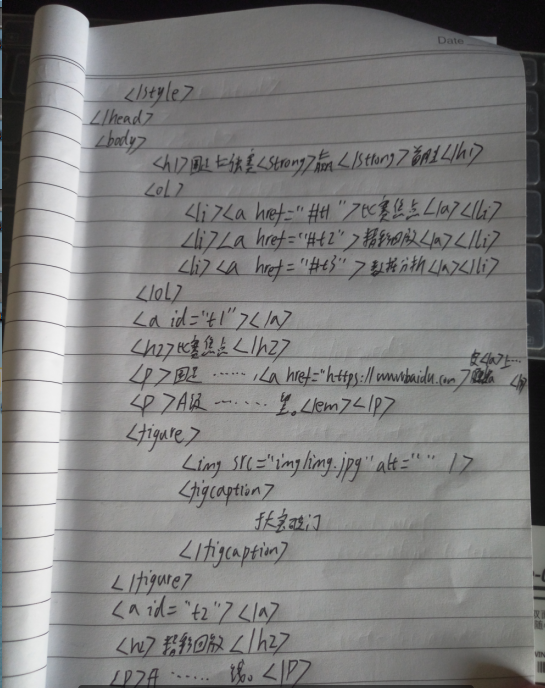 Date
</style>
</head>
<body>
<h1>国足七球赛<strong>赢</strong>首胜</h1>
<ol>
<li><a href="#t1">比赛焦点</a></li>
<li><a href="#t2">精彩回放</a></li>
<li><a href="#t3">数据分析</a></li>
</ol>
<a id="t1"></a>
<h2>比赛焦点</h2>
<p>国足……,<a href="https://www.baidu.com">
<p>A级……里。</em></p>
<figure>
<img src="img/img.jpg" alt=" " />
<figcaption>
破门
</figcaption>
</figure>
<a id="t2"></a>
<h2>精彩回放</h2>
<p>A……锡。</p>